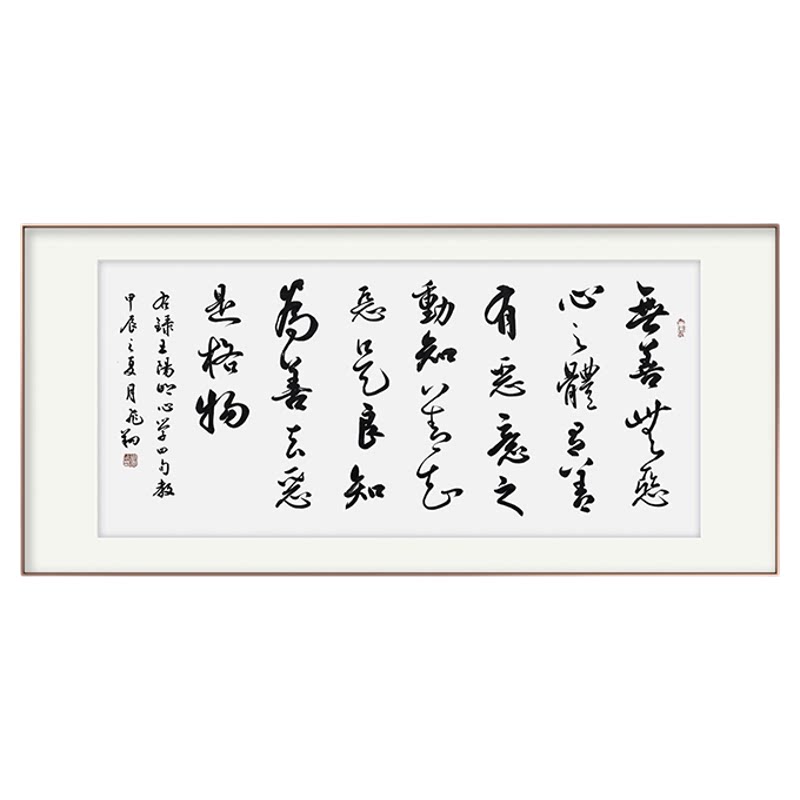 無善無惡
心之體有善
有惡意之
動知善知
惡是良知
為善去惡
是格物
右录王陽明心学四句教
甲辰之夏月飛翔